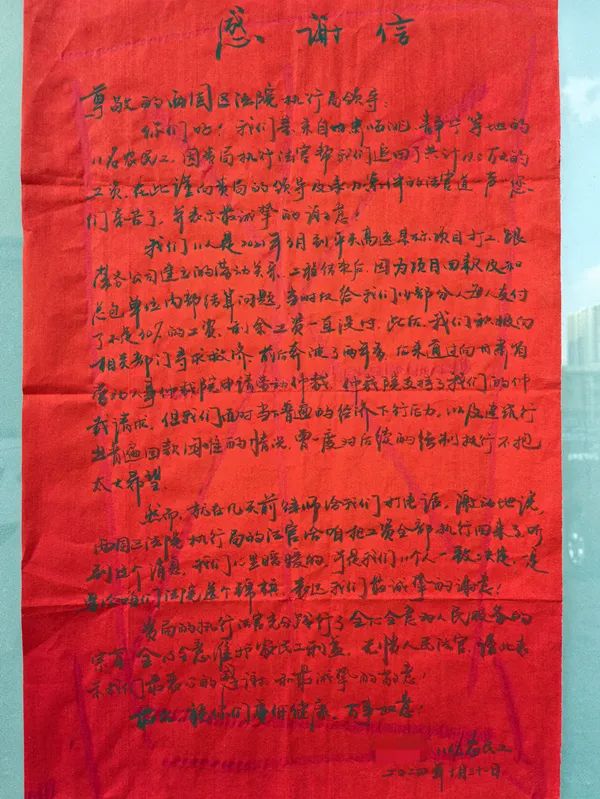 感谢信
尊敬的西固区法院执行局领导:
你们好!我们是来自甘肃临洮、静宁等地的
11名农民工,因贵局执行法官帮我们追回了共计
工资,在此谨向贵局的领导及承办案件的法官道一声:您
们辛苦了,并表示最诚挚的谢意!
我们11人是2021年3月到平天高速某标项目打工,跟
劳务公司建立的劳动关系,工程结束后,因为项目回款及和
总包单位内部结算问题,当时仅给我们部分人每人支付
了不足30%的工资,剩余工资一直没付。此后,我们积极向
相关部门寻求救济,前后奔波了两年多,后来通过向甘肃省
劳动人事仲裁院申请劳动仲裁,仲裁院支持了我们的仲
裁请求,但我们面对当下普遍的经济下行压力,以及建筑行
业普遍回款困难的情况,曾一度对后续的强制执行不抱
太大希望。
然而,就在几天前律师给我们打电话,激动地说,
西固区法院执行局的法官给咱把工资全部执行回来了,听
到这个消息,我们心里暖暖的,于是我们11个人一致决定,是
要给咱们法院送个锦旗,表达我们最诚挚的谢意!
贵局的执行法官充分践行了全心全意为人民服务的
宗旨,全心全意维护农民工利益,无愧人民法官,谨此表
示我们最衷心的感谢和最诚挚的敬意!
最后,祝你们身体健康,万事如意!
11名农民工
二〇二四年 月三十日